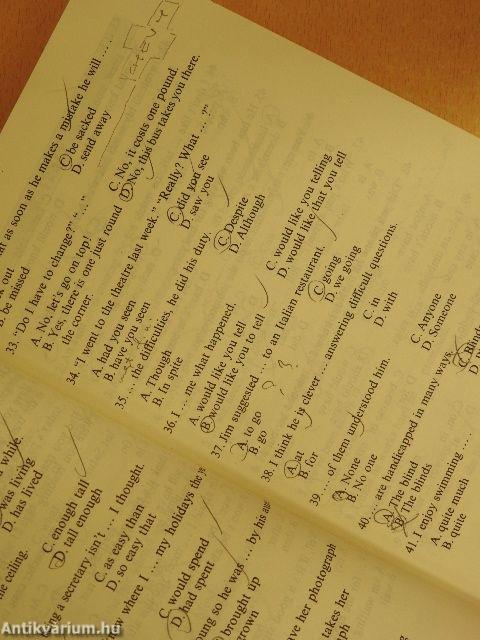 at as soon as he makes a mistake he will ....
C. be sacked
D. send away
out
B. be missed
33. "Do I have to change?" "..."
A. No, let's go on top!
B. Yes, there is one just round
the corner.
C. No, it costs one pound.
D. No, this bus takes you there.
34. "I went to the theatre last week." "Really? What ...?"
A. had you seen
B. have you seen
C. did you see
D. saw you
35. .... the difficulties, he did his duty.
A. Though
B. In spite
C. Despite
D. Although
36. I .... me what happened.
A. would like you tell
B. would like you to tell
C. would like you telling
D. would like that you tell
37. Jim suggested .... to an Italian restaurant.
A. to go
B. go
C. going
D. we going
38. I think he is clever .... answering difficult questions.
A. at
B. for
C. in
D. with
39 .... of them understood him.
A. None
B. No one
C. Anyone
D. Someone
40. .... are handicapped in many ways.
A. The blind
B. The blinds
C. Blinds
41. I enjoy swimming ....
A. quite much
B. quite
while.
was living
D. has lived
the ceiling.
C. enough tall
D. tall enough
a secretary isn't ... I thought.
C. as easy than
D. so easy that
where I .... my holidays the
C. would spend
D. had spent
so he was ... by his
brought up
her photograph
takes her
Antikvarium.hu